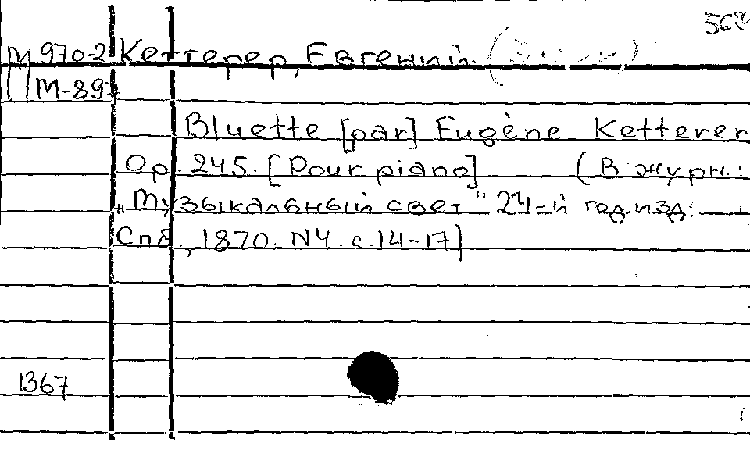 М 970-2 Кеттерер, Евгений
М-897
Bluette [par] Eugène Ketterer
Op. 245. [Pour piano] (В журн.:
„Музыкальный свет" 24-й год изд.
Спб, 1870. N4. с. 14-17)
1367